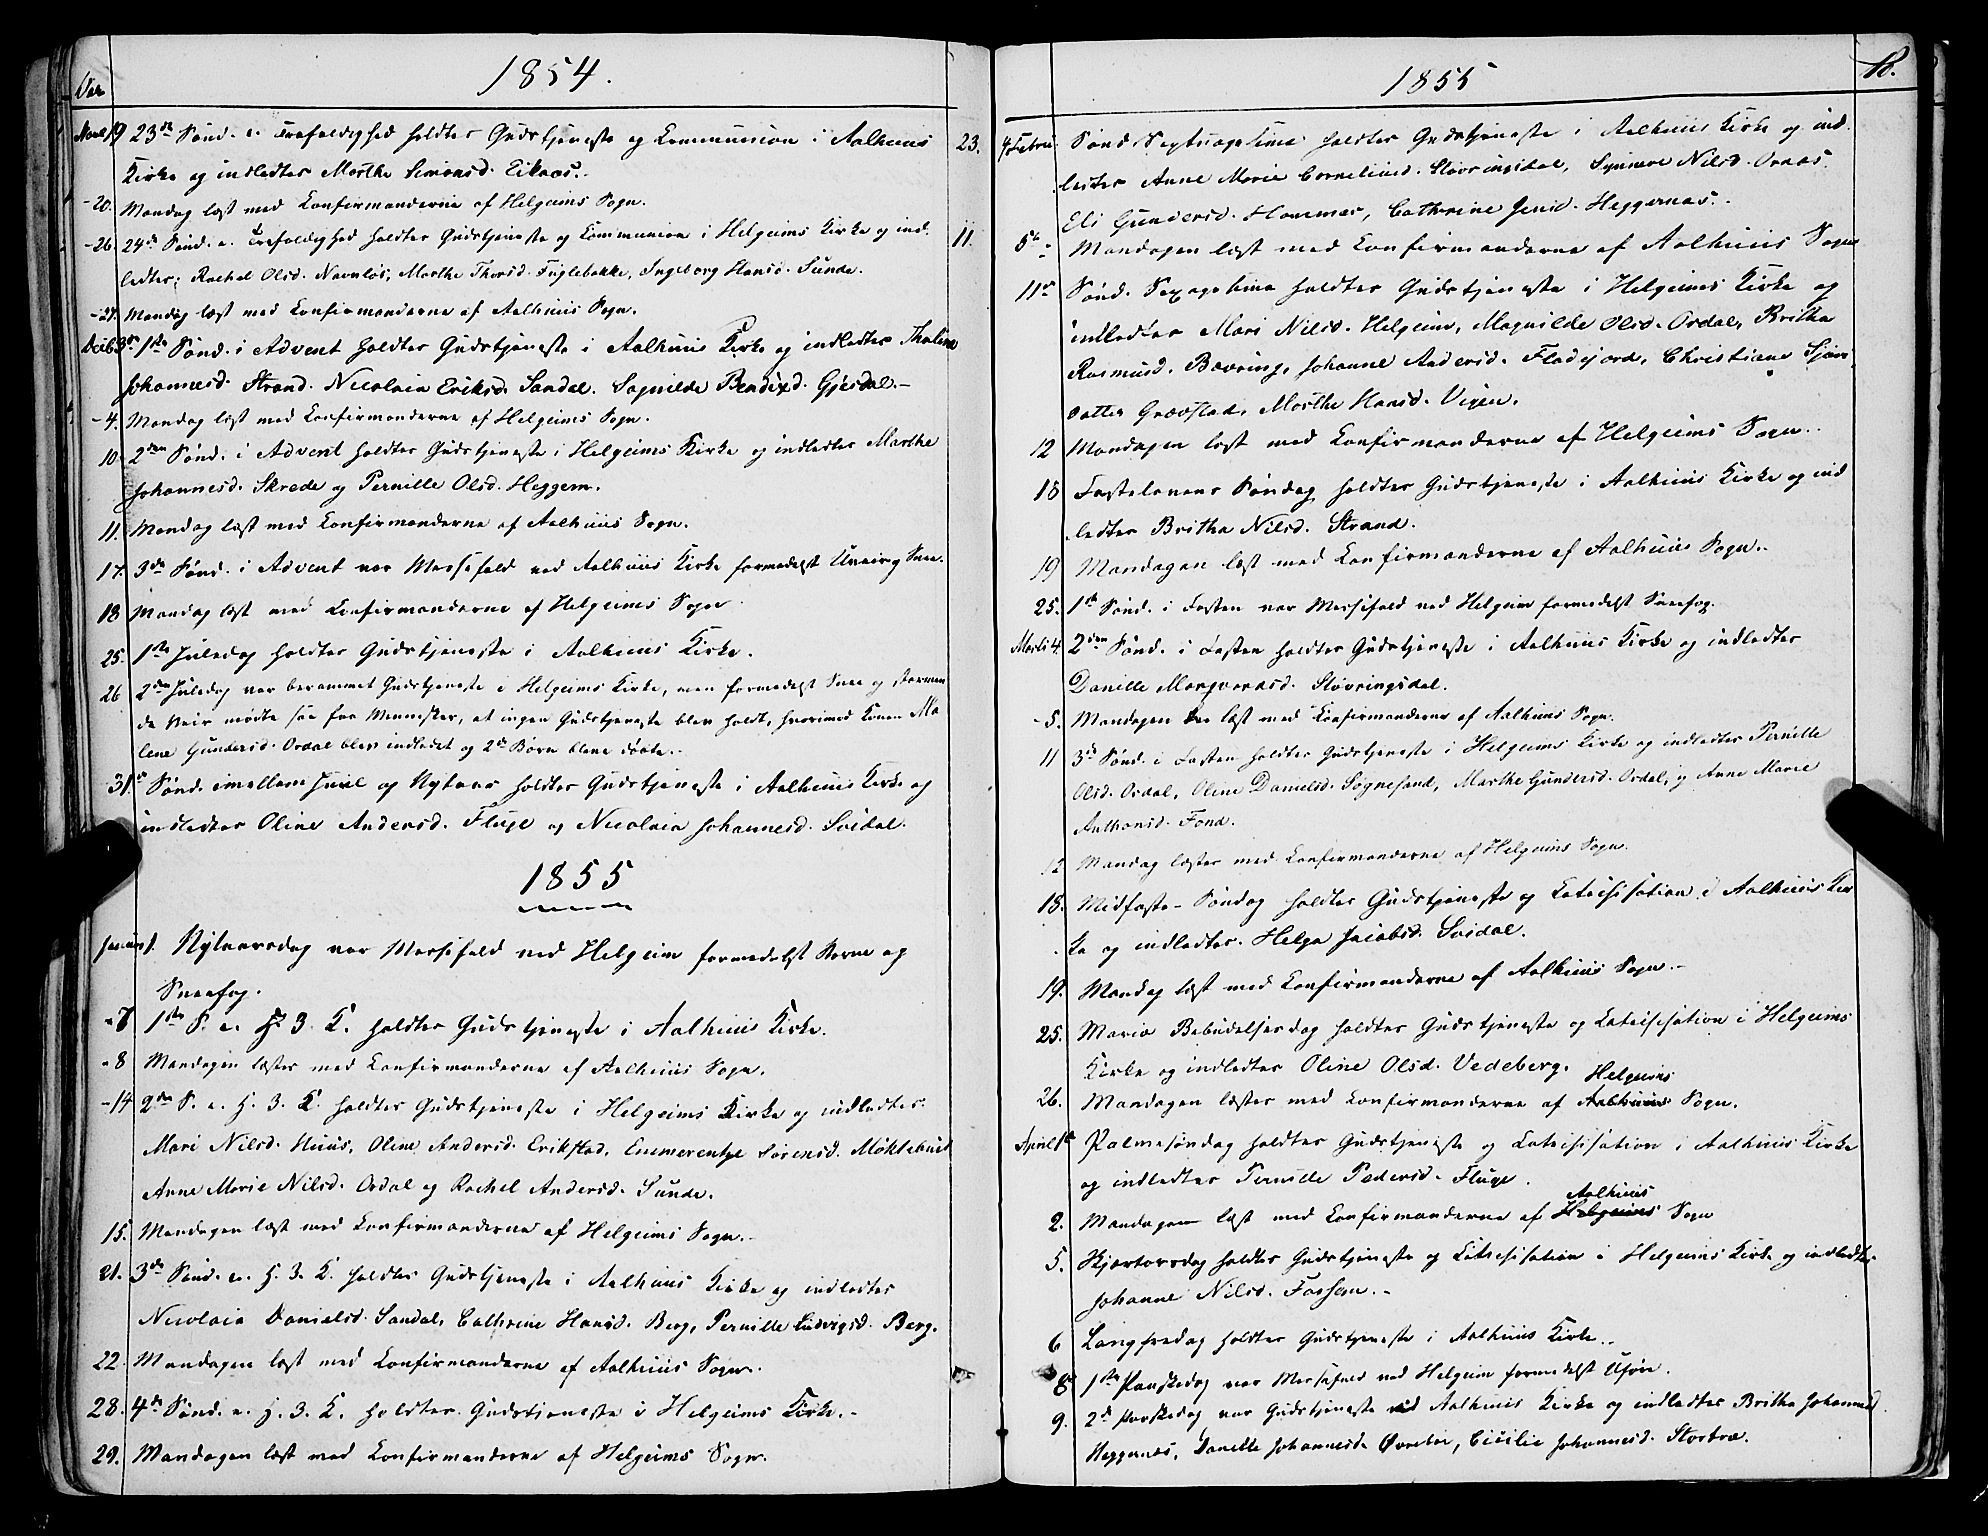 1854.
Novbr 19 23de Sønd. e. Trefoldighed holdtes Gudstjeneste og Kommunion i Aalhuus 23.
Kirke og indledtes Marthe Simonsd. Eikaas.-
-20. Mandag læst med Konfirmanderne af Helgeims Sogn.
-26. 24de Sønd. e. Trefoldighed holdtes Gudstjeneste og Kommunion i Helgeims Kirke og ind- 11.
ledtes; Rachel Olsd. Navnløs, Marthe Thorsd. Fuglebakke, Ingeborg Hansd. Sunde.
-27. Mandag læst med Konfirmanderne af Aalhuus Sogn.
Decbr 3de 1ste Sønd. i Advent holdtes Gudstjeneste i Aalhuus Kirke og indledtes Thaline
Johannesd. Strand. Nicolaia Eriksd. Sandal. Sagnilde Bendixd. Gjesdal.-
-4. Mandag læst med Konfirmanderne af Helgeims Sogn.
10. 2den Sønd. i Advent holdtes Gudstjeneste i Helgeims Kirke og indledtes Marthe
Johannesd. Skrede og Pernille Olsd. Heggem.
11. Mandag læst med Konfirmanderne af Aalhuus Sogn.
17. 3de Sønd. i Advent var Messefald ved Aalhuus Kirke formedelst Uveir og Snee.
18 Mandag læst med Konfirmanderne af Helgeims Sogn.
25. 1ste Juledag holdtes Gudstjeneste i Aalhuus Kirke.
26 2den Juledag var berammet Gudstjeneste i Helgeims Kirke, men formedelst Snee og stormen
de Veir mødte saa faa Mennesker, at ingen Gudstjeneste blev holdt, hvorimod Konen Ma
lene Gundersd. Ordal blev indledet og 2de Børn bleve døbte.-
31te Sønd. imellem Juul og Nytaar holdtes Gudstjeneste i Aalhuus Kirke og
indledtes Oline Andersd. Fluge og Nicolaia Johannesd. Svidal.
1855
Januar 1. Nytaarsdag var Messefald ved Helgeim formedelst Storm og
Sneefog.
-7 1ste S. e. H. 3. K. holdtes Gudstjeneste i Aalhuus Kirke.
-8 Mandagen læstes med Konfirmanderne af Aalhuus Sogn.
-14 2den S. e. H. 3. K. holdtes Gudstjeneste i Helgeims Kirke og indledtes
Mari Nilsd. Huus, Oline Andersd. Erikstad, Emmerentze Sørensd. Møklebust
Anne Marie Nilsd. Ordal og Rachel Andersd. Sunde.
15. Mandagen læst med Konfirmanderne af Helgeims Sogn.-
21. 3de Sønd. e. H. 3. K. holdtes Gudstjeneste i Aalhuus Kirke og indledtes
Nicolaia Danielsd. Sandal, Cathrine Hansd. Berg, Pernille Ludvigsd. Berg.
22. Mandagen læst med Konfirmanderne af Aalhuus Sogn.
28. 4de Sønd. e. H. 3. K. holdtes Gudstjeneste i Helgeims Kirke.-
29. Mandagen læst med Konfirmanderne af Helgeims Sogn.
1855 18.
4 Februar Sønd. Septuagesima holdtes Gudstjeneste i Aalhuus Kirke og ind-
ledtes Anne Marie Corneliusd. Støvringsdal, Synneve Nilsd. Oraas.
Eli Gundersd. Hammer, Cathrine Jensd. Heggernæs.-
5te Mandagen læst med Konfirmanderne af Aalhuus Sogn
11te Sønd. Sexagesima holdtes Gudstjeneste i Helgeims Kirke og
indledtes Mari Nilsd. Helgeim, Magnilde Olsd. Ordal, Britha
Rasmusd. Bævring, Johanne Andersd. Fladejord, Christiane
datter Grøvstad, Marthe Hansd. Vigen.
12 Mandagen læst med Konfirmanderne af Helgeims Sogn.-
18 Fastelavns Søndag holdtes Gudstjeneste i Aalhuus Kirke og ind
ledtes Britha Nilsd. Strand.
19 Mandagen læst med Konfirmanderne af Aalhuus Sogn.-
25. 1ste Sønd. i Fasten var Messefald ved Helgeim formedelst Sneefog.
Marts 4. 2den Sønd. i Fasten holdtes Gudstjeneste i Aalhuus Kirke og indledtes
Danille Margvardsd. Støvringsdal.
-5. Mandagen læst med Konfirmanderne af Aalhuus Sogn.
11 3de Sønd. i Fasten holdtes Gudstjeneste i Helgeims Kirke og indledtes Pernille
Olsd. Ordal, Oline Danielsd. Sognesand, Marthe Gundersd. Ordal, og Anne Marie
Anthonsd. Fond.
12 Mandag læstes med Konfirmanderne af Helgeims Sogn.
18. Midfaste-Søndag holdtes Gudstjeneste og Katechisation i Aalhuus Kir
ke og indledtes Helga Jacobsd. Svidal.
19. Mandag læst med Konfirmanderne af Aalhuus Sogn.-
25. Maria Bebudelsesdag holdtes Gudstjeneste og Catechisation i Helgeims
Kirke og indledtes Oline Olsd. Vedeberg.
Helgeims
26. Mandagen læstes med Konfirmanderne af Aalhuus Sogn.
April 1ste Palmesøndag holdtes Gudstjeneste og Catechisation i Aalhuus Kirke
og indledtes Pernille Pedersd. Fluge.
Aalhuus
2. Mandagen læst med Konfirmanderne af Helgeims Sogn
5. Skjærtorsdag holdtes Gudstjeneste og Catechisation i Helgeims Kirke og indledtes
Johanne Nilsd. Fossem.-
6 Langfredag holdtes Gudstjeneste i Aalhuus Kirke.-
8 1ste Paaskedag var Messefald ved Helgeim formedelst Uføre.
9. 2den Paaskedag var Gudstjeneste ved Aalhuus Kirke og indledtes Britha Johannesd.
Heggernæs, Danille Johannesd. Øvrebø, Cicilie Johannesd. Stortræ.